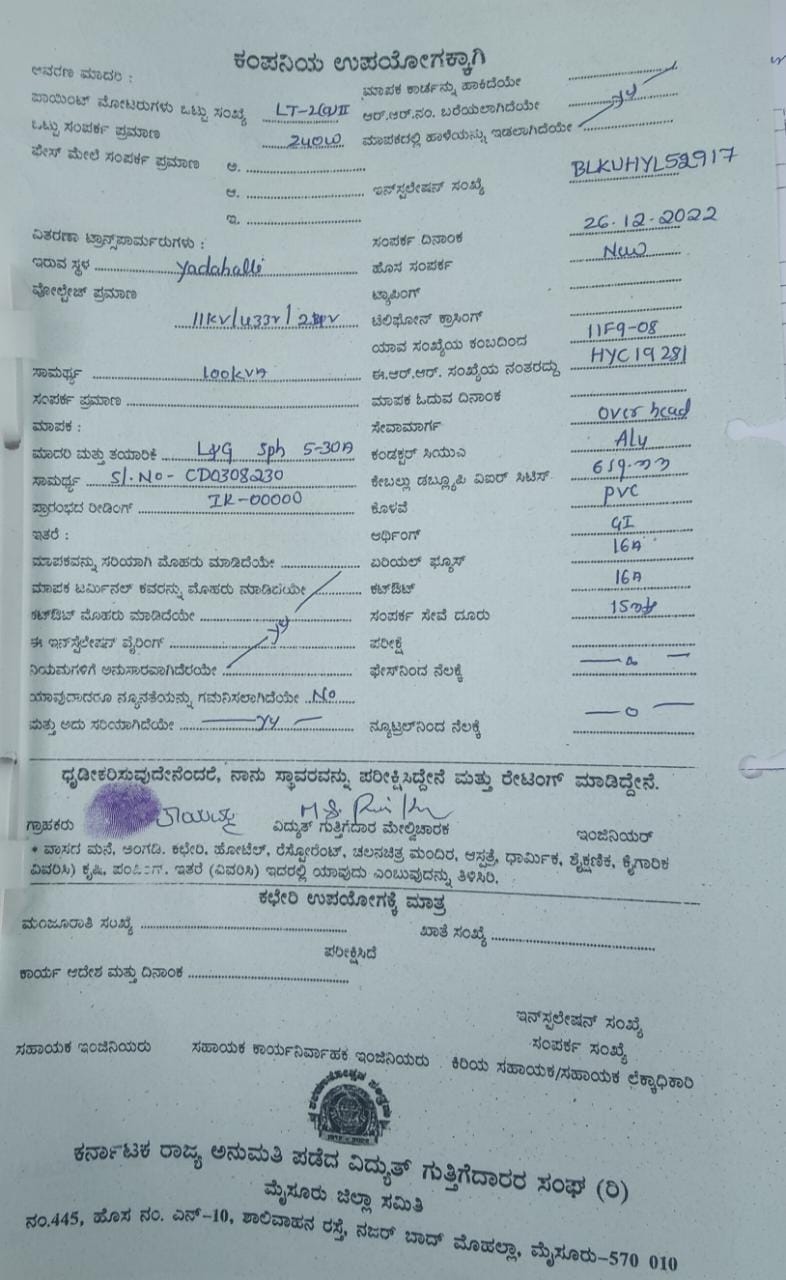 ಕಂಪನಿಯ ಉಪಯೋಗಕ್ಕಾಗಿ
ಆವರಣ ಮಾದರಿ : ಮಾಪಕ ಕಾರ್ಡನ್ನು ಹಾಕಿದೆಯೇ
ಪಾಯಿಂಟ್ ಮೋಟರುಗಳು ಒಟ್ಟು ಸಂಖ್ಯೆ LT-2(a)II ಆರ್.ಆರ್.ನಂ. ಬರೆಯಲಾಗಿದೆಯೇ
ಒಟ್ಟು ಸಂಪರ್ಕ ಪ್ರಮಾಣ 240W ಮಾಪಕದಲ್ಲಿ ಹಾಳೆಯನ್ನು ಇಡಲಾಗಿದೆಯೇ
ಫೇಸ್ ಮೇಲೆ ಸಂಪರ್ಕ ಪ್ರಮಾಣ ಅ.
ಆ. ಇನ್‌ಸ್ಟಲೇಷನ್ ಸಂಖ್ಯೆ BLKUHYL52917
ಇ.
ವಿತರಣಾ ಟ್ರಾನ್ಸ್‌ಫಾರ್ಮರುಗಳು : ಸಂಪರ್ಕ ದಿನಾಂಕ 26.12.2022
ಇರುವ ಸ್ಥಳ Yadahalli ಹೊಸ ಸಂಪರ್ಕ New
ವೋಲ್ಟೇಜ್ ಪ್ರಮಾಣ ಟ್ಯಾಪಿಂಗ್
11KV/433V/ ಟೆಲಿಫೋನ್ ಕ್ರಾಸಿಂಗ್
ಯಾವ ಸಂಖ್ಯೆಯ ಕಂಬದಿಂದ 11F9-08
ಸಾಮರ್ಥ್ಯ 100KVA ಈ.ಆರ್.ಆರ್. ಸಂಖ್ಯೆಯ ನಂತರದ್ದು HYC19281
ಸಂಪರ್ಕ ಪ್ರಮಾಣ ಮಾಪಕ ಓದುವ ದಿನಾಂಕ
ಮಾಪಕ : ಸೇವಾಮಾರ್ಗ Over head
ಮಾದರಿ ಮತ್ತು ತಯಾರಿಕೆ L&G Sph 5-30A ಕಂಡಕ್ಟರ್ ಸಿಯುಎ Aly
ಸಾಮರ್ಥ್ಯ Sl.No- CD0308230 ಕೇಬಲ್ಲು ಡಬ್ಲ್ಯೂಪಿ ವಿಐಆರ್ ಸಿಟಿಸ್
ಪ್ರಾರಂಭದ ರೀಡಿಂಗ್ IR-00000 ಕೊಳವೆ PVC
ಇತರೆ : ಆರ್ಥಿಂಗ್ GI
ಮಾಪಕವನ್ನು ಸರಿಯಾಗಿ ಮೊಹರು ಮಾಡಿದೆಯೇ ಏರಿಯಲ್ ಫ್ಯೂಸ್ 16A
ಮಾಪಕ ಟರ್ಮಿನಲ್ ಕವರನ್ನು ಮೊಹರು ಮಾಡಿದೆಯೇ ಕಟ್‌ಔಟ್ 16A
ಕಟ್‌ಔಟ್ ಮೊಹರು ಮಾಡಿದೆಯೇ ಸಂಪರ್ಕ ಸೇವೆ ದೂರು
ಈ ಇನ್‌ಸ್ಟಲೇಷನ್ ವೈರಿಂಗ್ ಪರೀಕ್ಷೆ
ನಿಯಮಗಳಿಗೆ ಅನುಸಾರವಾಗಿದೆರಯೇ ಫೇಸ್‌ನಿಂದ ನೆಲಕ್ಕೆ
ಯಾವುದಾದರೂ ನ್ಯೂನತೆಯನ್ನು ಗಮನಿಸಲಾಗಿದೆಯೇ No
ಮತ್ತು ಅದು ಸರಿಯಾಗಿದೆಯೇ ನ್ಯೂಟ್ರಲ್‌ನಿಂದ ನೆಲಕ್ಕೆ
ಧೃಡೀಕರಿಸುವುದೇನೆಂದರೆ, ನಾನು ಸ್ಥಾವರವನ್ನು ಪರೀಕ್ಷಿಸಿದ್ದೇನೆ ಮತ್ತು ರೇಟಿಂಗ್ ಮಾಡಿದ್ದೇನೆ.
ಗ್ರಾಹಕರು ವಿದ್ಯುತ್ ಗುತ್ತಿಗೆದಾರ ಮೇಲ್ವಿಚಾರಕ ಇಂಜಿನಿಯರ್
* ವಾಸದ ಮನೆ, ಅಂಗಡಿ. ಕಛೇರಿ, ಹೋಟೆಲ್, ರೆಸ್ಟೋರೆಂಟ್, ಚಲನಚಿತ್ರ ಮಂದಿರ, ಆಸ್ಪತ್ರೆ, ಧಾರ್ಮಿಕ, ಶೈಕ್ಷಣಿಕ, ಕೈಗಾರಿಕ
ವಿವರಿಸಿ) ಕೃಷಿ, ಇತರೆ (ವಿವರಿಸಿ) ಇದರಲ್ಲಿ ಯಾವುದು ಎಂಬುವುದನ್ನು ತಿಳಿಸಿರಿ.
ಕಛೇರಿ ಉಪಯೋಗಕ್ಕೆ ಮಾತ್ರ
ಮಂಜೂರಾತಿ ಸಂಖ್ಯೆ ಖಾತೆ ಸಂಖ್ಯೆ
ಪರೀಕ್ಷಿಸಿದೆ
ಕಾರ್ಯ ಆದೇಶ ಮತ್ತು ದಿನಾಂಕ
ಇನ್‌ಸ್ಟಲೇಷನ್ ಸಂಖ್ಯೆ
ಸಂಪರ್ಕ ಸಂಖ್ಯೆ
ಸಹಾಯಕ ಇಂಜಿನಿಯರು ಸಹಾಯಕ ಕಾರ್ಯನಿರ್ವಾಹಕ ಇಂಜಿನಿಯರು ಕಿರಿಯ ಸಹಾಯಕ/ಸಹಾಯಕ ಲೆಕ್ಕಾಧಿಕಾರಿ
ಕರ್ನಾಟಕ ರಾಜ್ಯ ಅನುಮತಿ ಪಡೆದ ವಿದ್ಯುತ್ ಗುತ್ತಿಗೆದಾರರ ಸಂಘ (ರಿ)
ಮೈಸೂರು ಜಿಲ್ಲಾ ಸಮಿತಿ
ನಂ.445, ಹೊಸ ನಂ. ಎನ್-10, ಶಾಲಿವಾಹನ ರಸ್ತೆ, ನಜರ್ ಬಾದ್ ಮೊಹಲ್ಲಾ, ಮೈಸೂರು-570 010